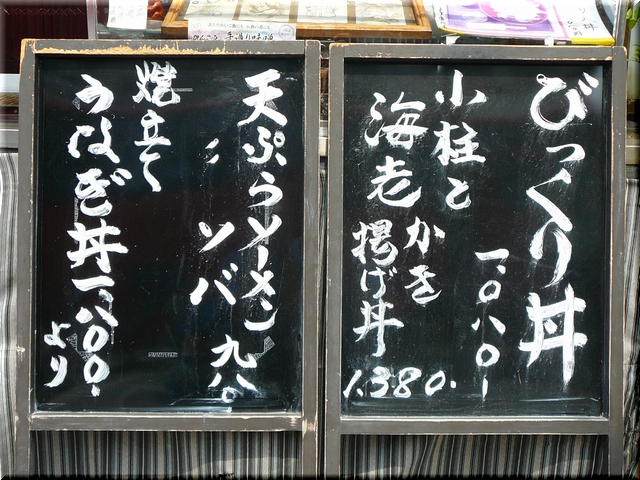 びっくり丼
一、〇八〇ー
小柱と
かき
海老
揚げ丼
1.380.
天ぷらソーメン 九八〇
〃 ソバ
焼立て
うなぎ丼 一、八〇〇ー
より